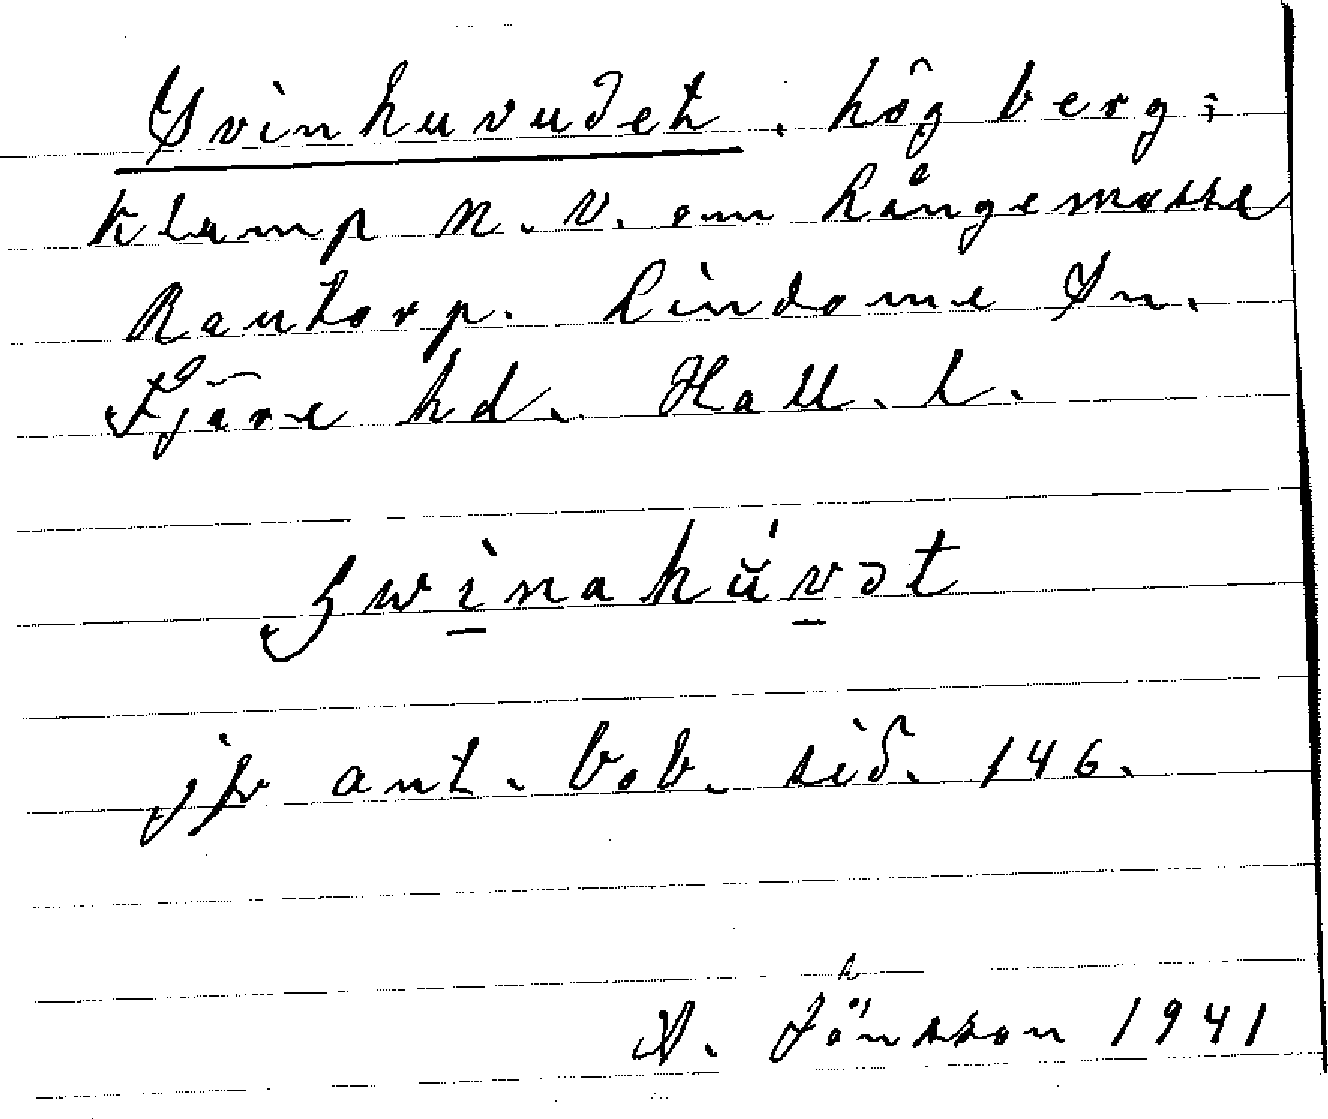 Svinhuvudet, hög berg=
klump N.V. om Långemosse
Rantorp. Lindome Sn.
Fjäre hd. Hall. l.
Swinahŭvət
jfr ant. bok. sid. 146.
A. Jönsson 1941